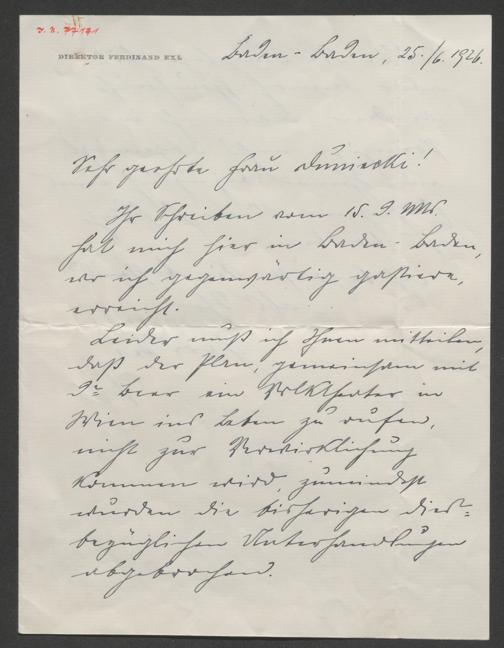 I. N. 77141
DIREKTOR FERDINAND EXL
Baden-Baden, 25./6. 1926.
Sehr geehrte Frau Duniecki!
Ihr Schreiben vom 15. d. Mts.
hat mich hier in Baden-Baden,
wo ich gegenwärtig gastiere,
erreicht.
Leider muß ich Ihnen mitteilen,
daß der Plan, gemeinsam mit
Dr Beer ein Volkstheater in
Wien ins Leben zu rufen,
nicht zur Verwirklichung
kommen wird, zumindest
wurden die bisherigen dies=
bezüglichen Unterhandlungen
abgebrochen.